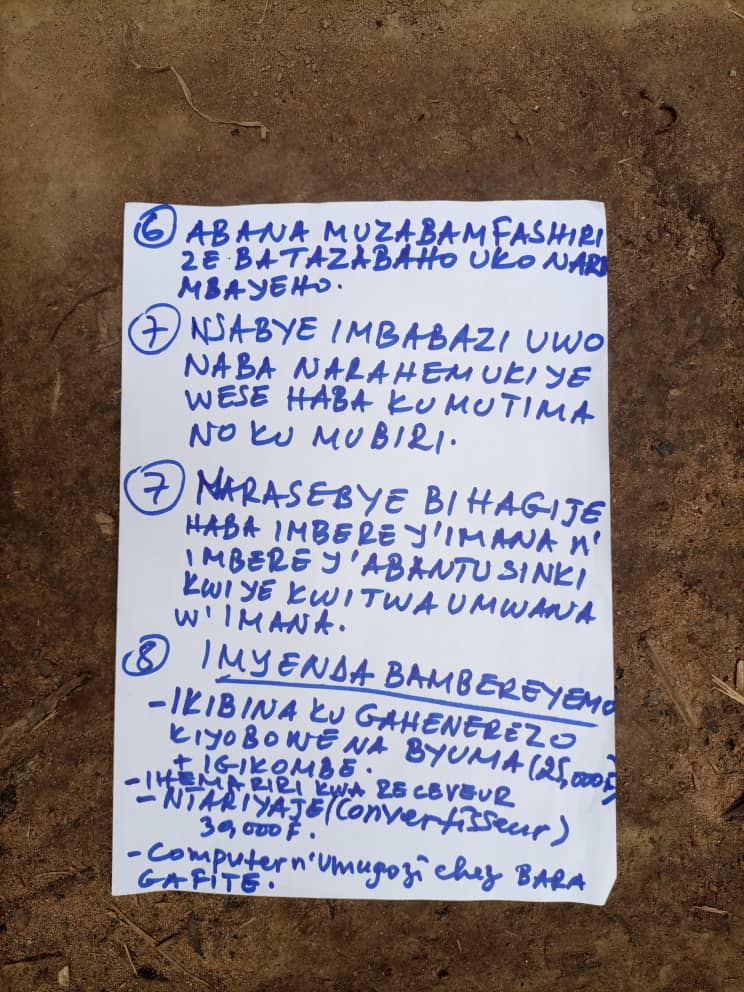 6 ABANA MUZABAMFASHIRI
ZE BATAZABAHO UKO NARI
MBAYEHO.
7 NSABYE IMBABAZI UWO
NABA NARAHEMUKIYE
WESE HABA KU MUTIMA
NO KU MUBIRI.
7 NARASEBYE BIHAGIJE
HABA IMBERE Y'IMANA N'
IMBERE Y'ABANTU SINKI
KWIYE KWITWA UMWANA
W'IMANA.
8 IMYENDA BAMBEREYEMO
- IKIBINA KU GAHENEREZO
KIYOBOWE NA BYUMA (25,000F)
+ IGIKOMBE.
- IHEMA RIRI KWA RECEVEUR
- NTARIYAJE (Convertisseur)
30,000 F.
- Computer n'umugozi chez BARA
GAFITE.